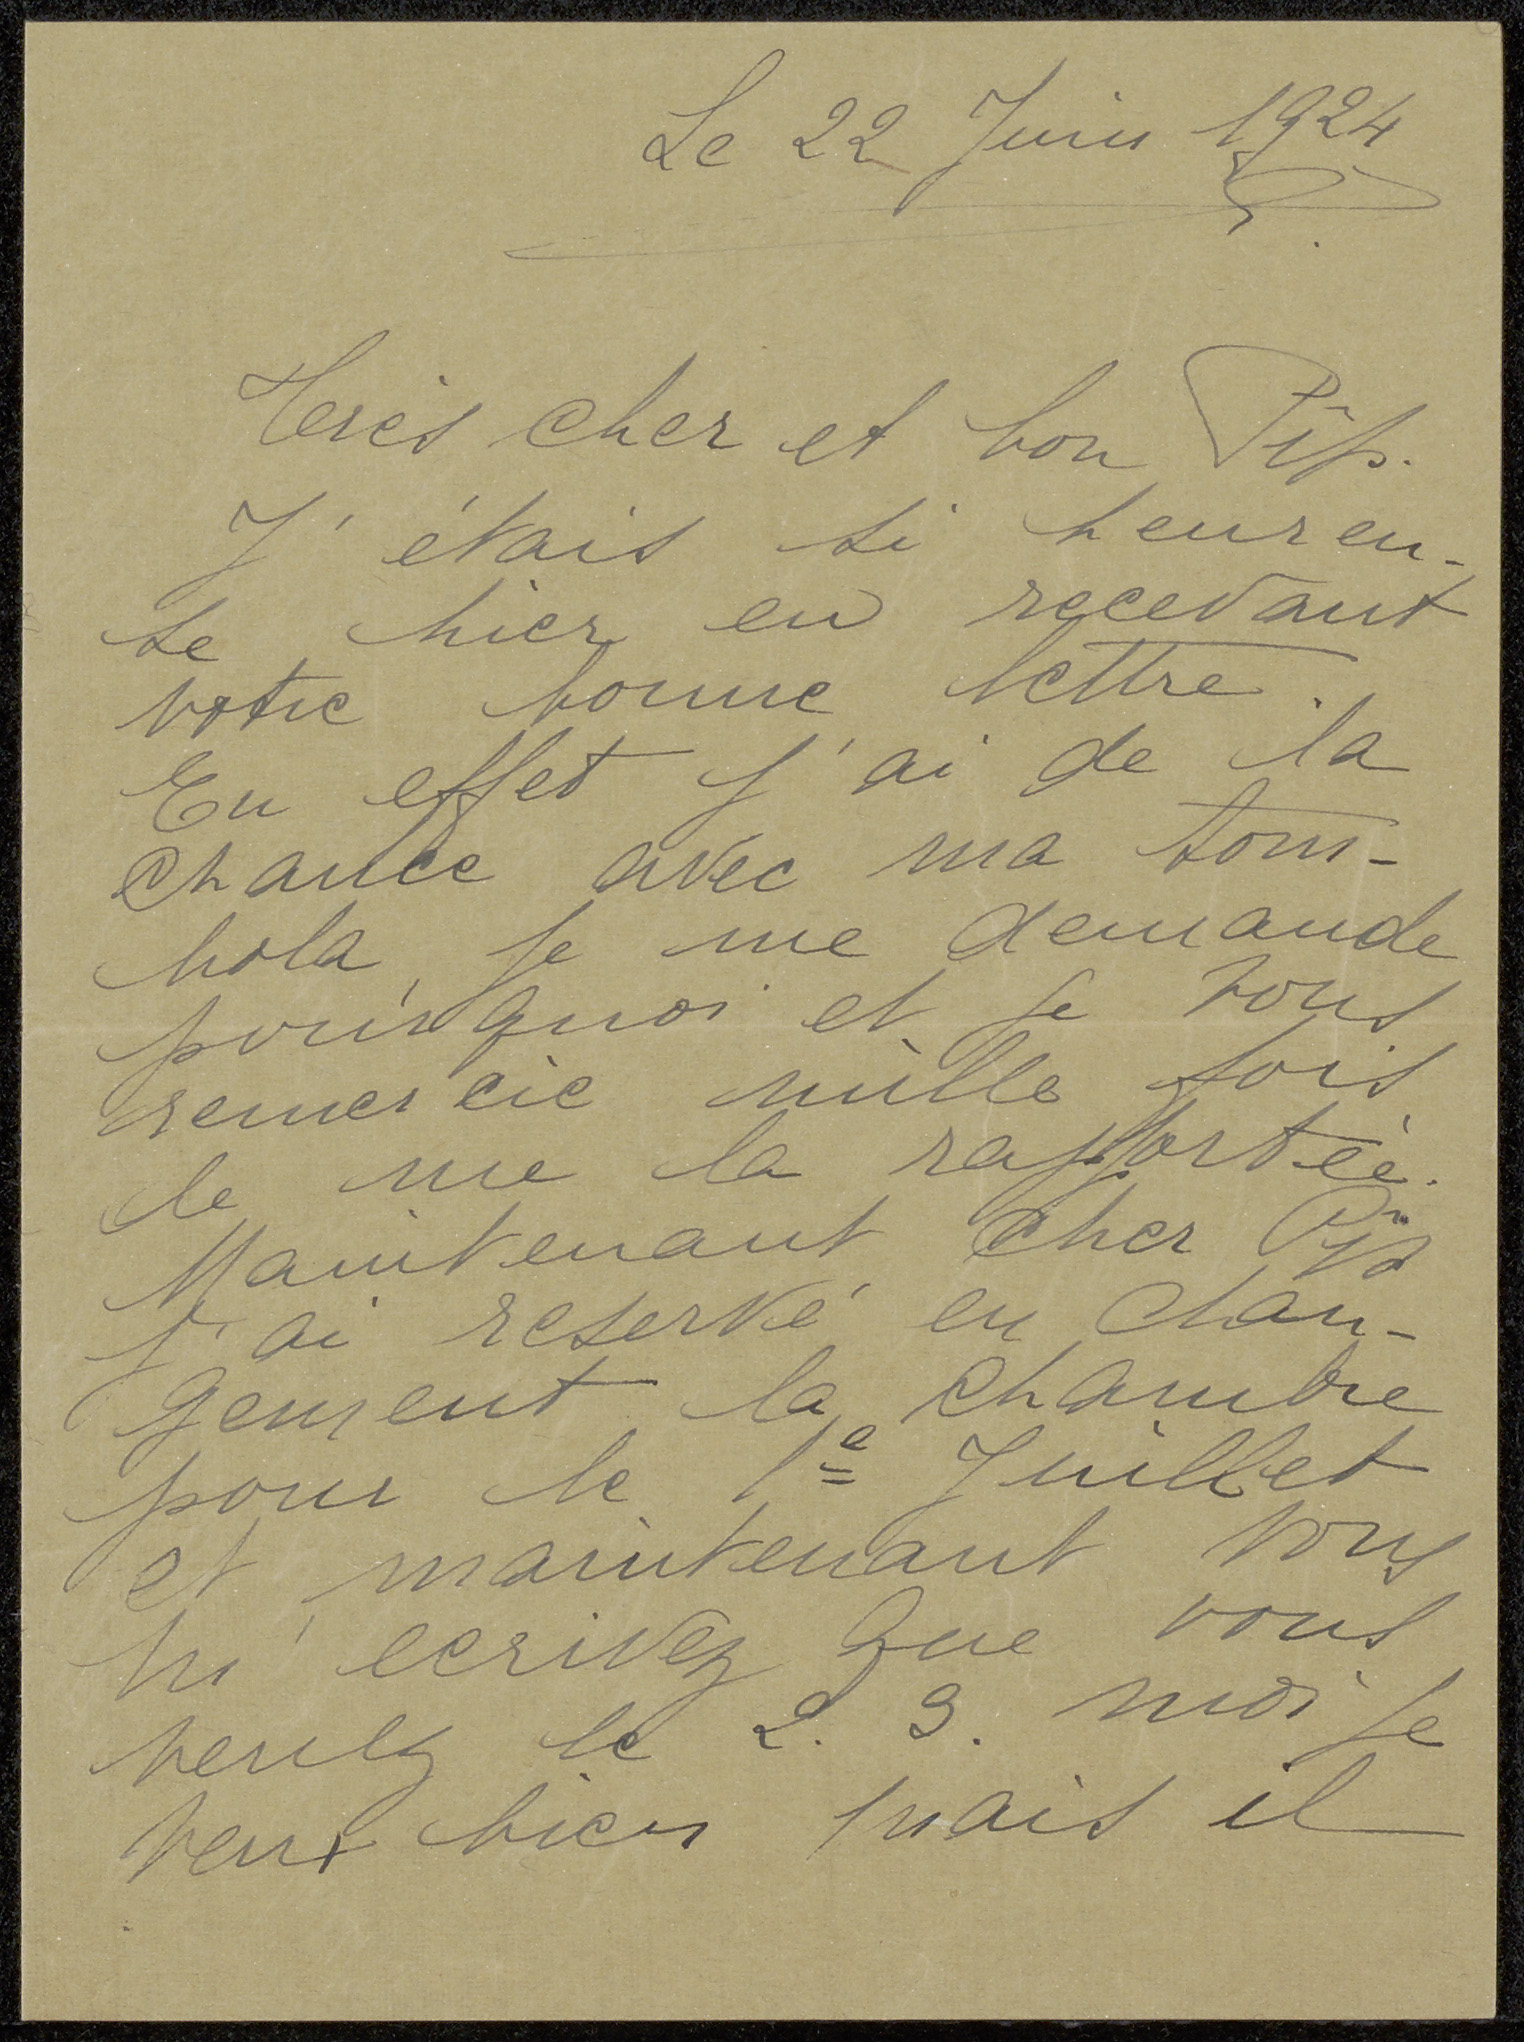 Le 22 Juin 1924
Terès cher et bon Pip.
J'étais si heureu-
se hier en recevant
votre bonne lettre.
En effet j'ai de la
chance avec ma tom-
bola, je me demande
pourquoi et je vous
remercie mille fois
de me la rapportée.
Maintenant cher Pip
j'ai reservé en chan-
gement la chambre
pour le 1e Juillet
et maintenant vous
m'ecrivez que vous
venez le 2. 3. moi je
veux bien mais il